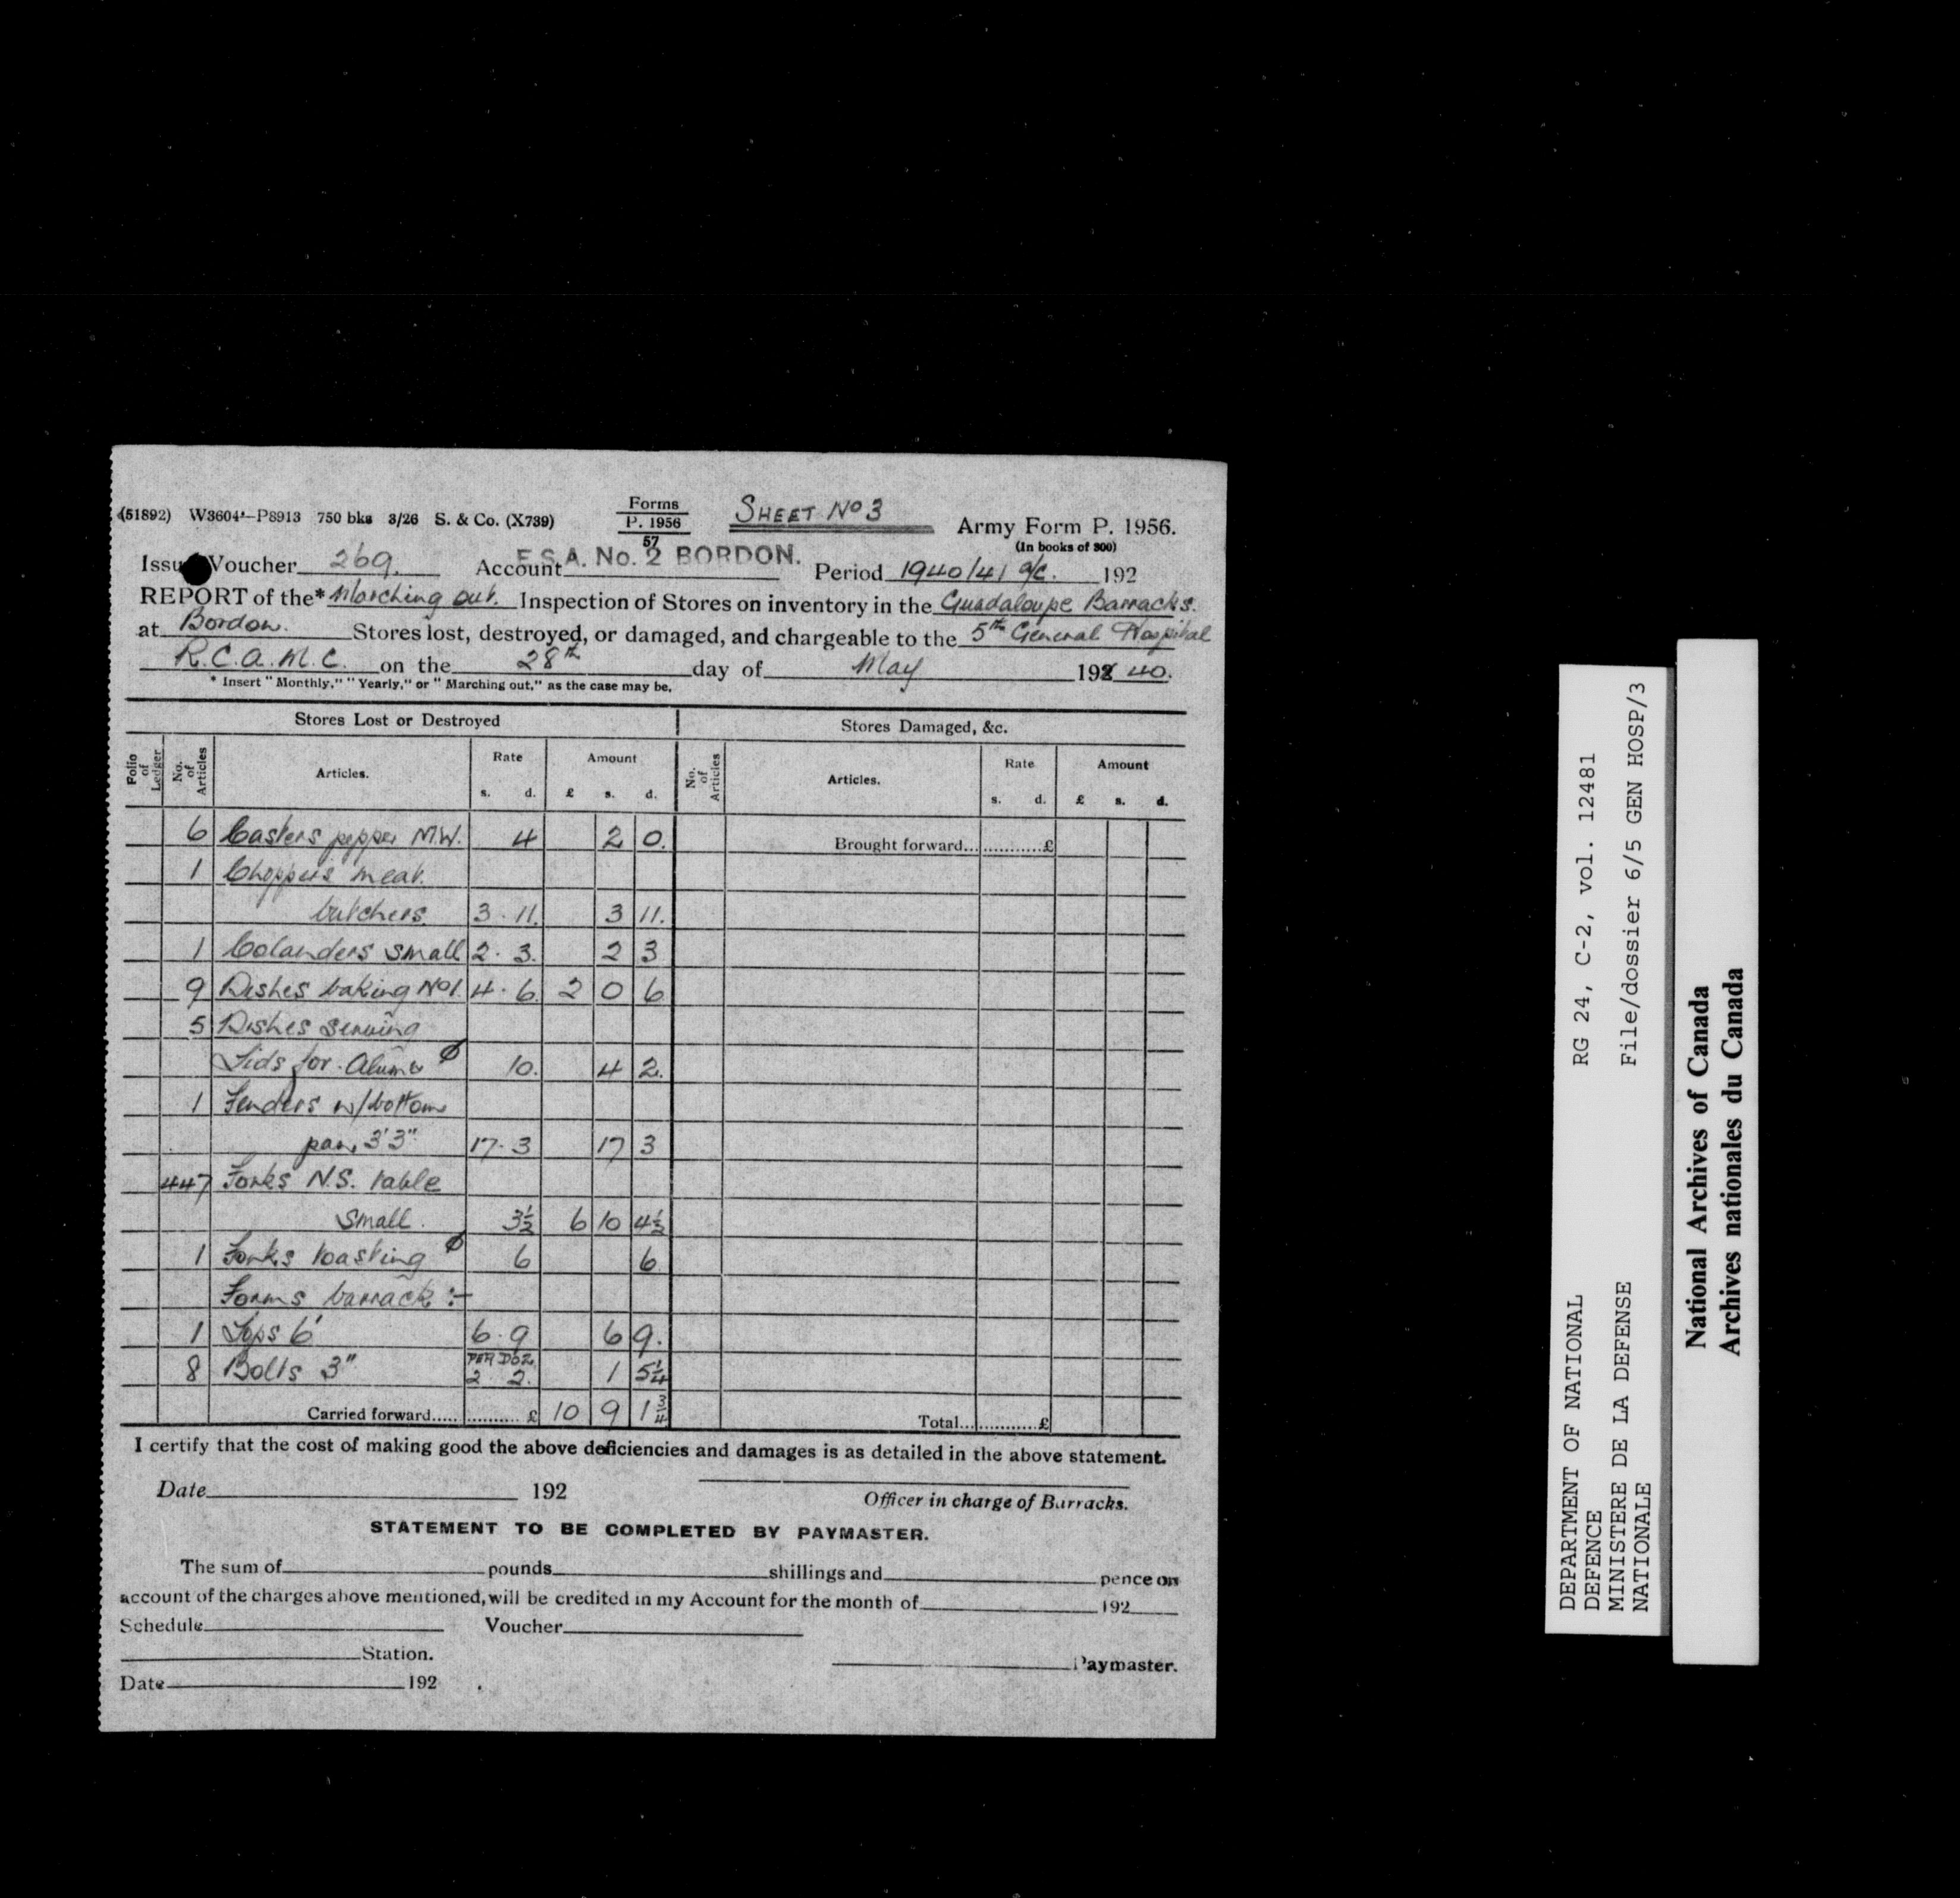 (51892) W3604—P8913 750 bks 3/26 S. & Co. (X739) Forms P. 1956 57 SHEET No 3 Army Form P. 1956.
(In books of 300)
Issue Voucher 269. Account F.S.A. No. 2 BORDON. Period 1940/41 a/c. 192
REPORT of the* Marching out. Inspection of Stores on inventory in the Guadaloupe Barracks.
at Bordon. Stores lost, destroyed, or damaged, and chargeable to the 5th General Hospital
R.C.A.M.C. on the 28th day of May 192 40.
* Insert "Monthly," "Yearly," or "Marching out," as the case may be.
Stores Lost or Destroyed Stores Damaged, &c.
Folio of Ledger No. of Articles Articles. Rate Amount No. of Articles Articles. Rate Amount
s. d. £ s. d. s. d. £ s. d.
6 Casters pepper M.W. 4 2 0. Brought forward... £
1 Choppers meat.
butchers. 3 . 11. 3 11.
1 Colanders small 2 . 3. 2 3
9 Dishes baking No1. 4 . 6. 2 0 6
5 Dishes serving
Lids for Alumn ø 10. 4 2.
1 Fenders w/bottom
pan 3'3" 17 . 3 17 3
447 Forks N.S. table
small. 3½ 6 10 4½
1 Forks toasting ø 6 6
Forms barrack :-
1 Tops 6' 6 . 9 6 9.
8 Bolts 3" PER DOZ. 2 2. 1 5¼
Carried forward..... £ 10 9 1¾ Total... £
I certify that the cost of making good the above deficiencies and damages is as detailed in the above statement.
Date 192
Officer in charge of Barracks.
STATEMENT TO BE COMPLETED BY PAYMASTER.
The sum of pounds shillings and pence on
account of the charges above mentioned, will be credited in my Account for the month of 192
Schedule Voucher
Station.
Paymaster.
Date 192
DEPARTMENT OF NATIONAL DEFENCE
MINISTERE DE LA DEFENSE NATIONALE
RG 24, C-2, vol. 12481
File/dossier 6/5 GEN HOSP/3
National Archives of Canada
Archives nationales du Canada